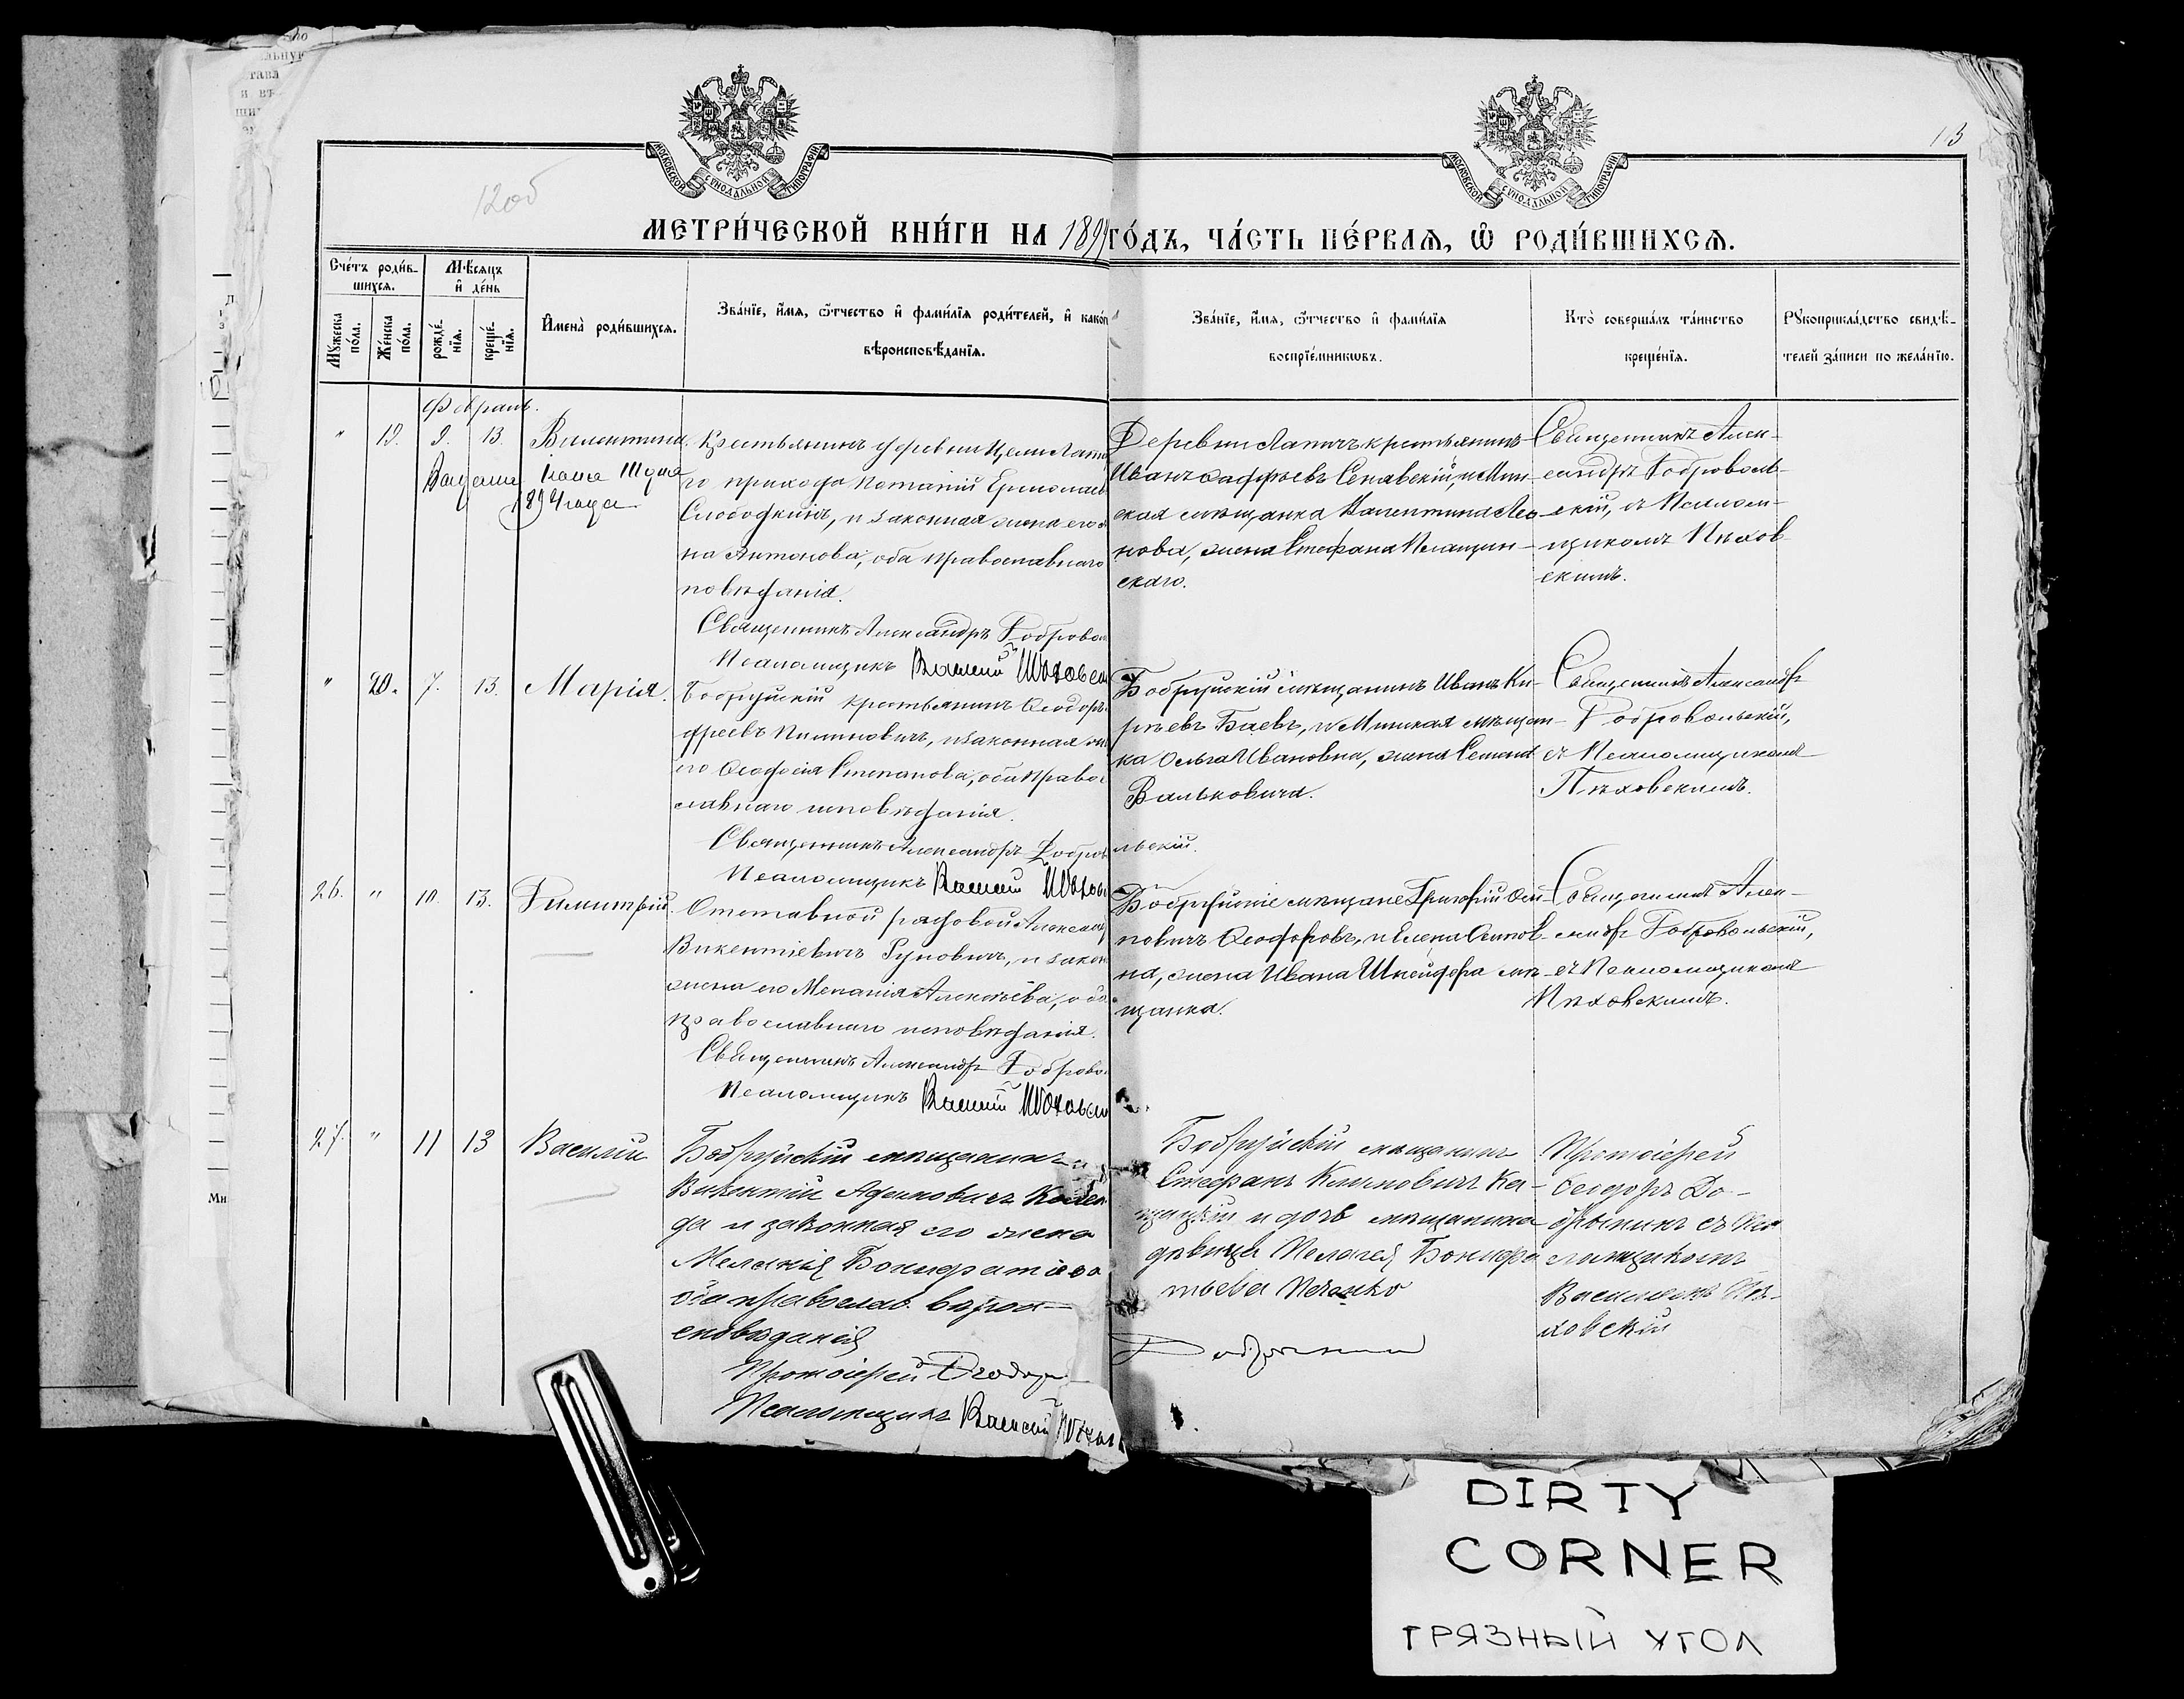 13
120б
МОСКОВСКОЙ СѴНОДАЛЬНОЙ ТИПОГРАФІИ
МОСКОВСКОЙ СѴНОДАЛЬНОЙ ТИПОГРАФІИ
МЕТРИ́ЧЕСКОЙ КНИ́ГИ НА 189 ГО́ДЪ, ЧА́СТЬ ПЕ́РВАЯ, Ѡ РОДИ́ВШИХСЯ.
Сче́тъ роди́в-
шихся.
Мꙋ́жеска по́ла.
Же́нска по́ла.
Мѣ́сяцъ
и҆ де́нь
рожде́нїя.
креще́нїя.
И҆мена̀ роди́вшихся.
Зва́нїе, и҆́мя, ѻ҆́тчество и҆ фами́лїя роди́телей, и҆ како́гѡ
вѣроисповѣ́данїя.
Зва́нїе, и҆́мя, ѻ҆́тчество и҆ фами́лїя
воспрїе́мникѡвъ.
Кто̀ соверша́лъ та́инство
креще́нїя.
Рꙋкоприкла́дство свидѣ́-
телей за́писи по жела́нїю.
Февраль.
" 19. 9. 13. Валентина.
1894 года
Крестьянинъ деревни Цели
го прихода Потапій Ермолаев
Слободкинъ, и законная жена его
на Антонова, оба православнаго
повѣданія.
Священникъ Александръ Добровол
Псаломщикъ Василій Пѣховск
Деревни Лапичъ крестьянинъ
Иванъ Сенявскій, и Мин-
ская мѣщанка Валентина Лео-
нова, жена Стефана
скаго.
Священникъ Алек-
сандръ Доброволь-
скій, съ Псалом-
щикомъ Пѣхов-
скимъ.
" 20. 7. 13. Марія.
Бобруйскій крестьянинъ Ѳеодоръ
дреевъ Климовичъ, и законная же
его Ѳеодосія Степанова, оба право-
славнаго исповѣданія.
Священникъ Александръ Добров
льскій.
Псаломщикъ Василій Пѣхов
Бобруйскій мѣщанинъ Иванъ Ки-
рѣевъ Баевъ, и Минская мѣщан-
ка Ольга Ивановна, жена Семена
Вальковича.
Священникъ Александръ
Добровольскій,
съ Псаломщикомъ
Пѣховскимъ.
26. " 10. 13. Димитрій.
Отставной рядовой Александ
Викентіевичъ Гуновичъ, и закон
жена его Меланія Алексѣева, оба
православнаго исповѣданія.
Священникъ Александръ Доброво
Псаломщикъ Василій Пѣховск
Бобруйскіе мѣщане Григорій Оси-
повичъ Ѳеодоровъ, и Елена Осипов-
на, жена Ивана Шнейдора мѣ-
щанка.
Священникъ Алек-
сандръ Добровольскій,
съ Псаломщикомъ
Пѣховскимъ.
27. " 11 13 Василій
Бобруйскій мѣщанинъ
Викентій Адамовичъ
да и законная его жена
Меланія Бонифатіева
оба православ. вѣрои-
сповѣданія
Протоіерей Ѳеодоръ
Псаломщикъ Василій Пѣховс
Бобруйскій мѣщанинъ
Стефанъ Климовичъ Ка-
щицкій и дочь мѣщанина
дѣвица Пелагея Бонифа
тьева
Протоіерей
Ѳеодоръ До-
брынинъ съ Пса
ломщикомъ
Василіемъ Пѣ-
ховскій
DIRTY
CORNER
ГРЯЗНЫЙ УГОЛ